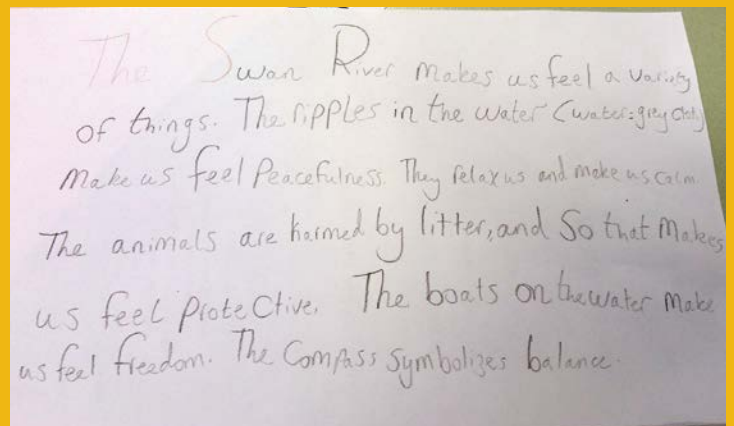 The Swan River makes us feel a variety
of things. The ripples in the water (water: grey cloth)
make us feel Peacefulness. They relax us and make us calm.
The animals are harmed by litter, and so that makes
us feel protective. The boats on the water make
us feel freedom. The Compass symbolizes balance.